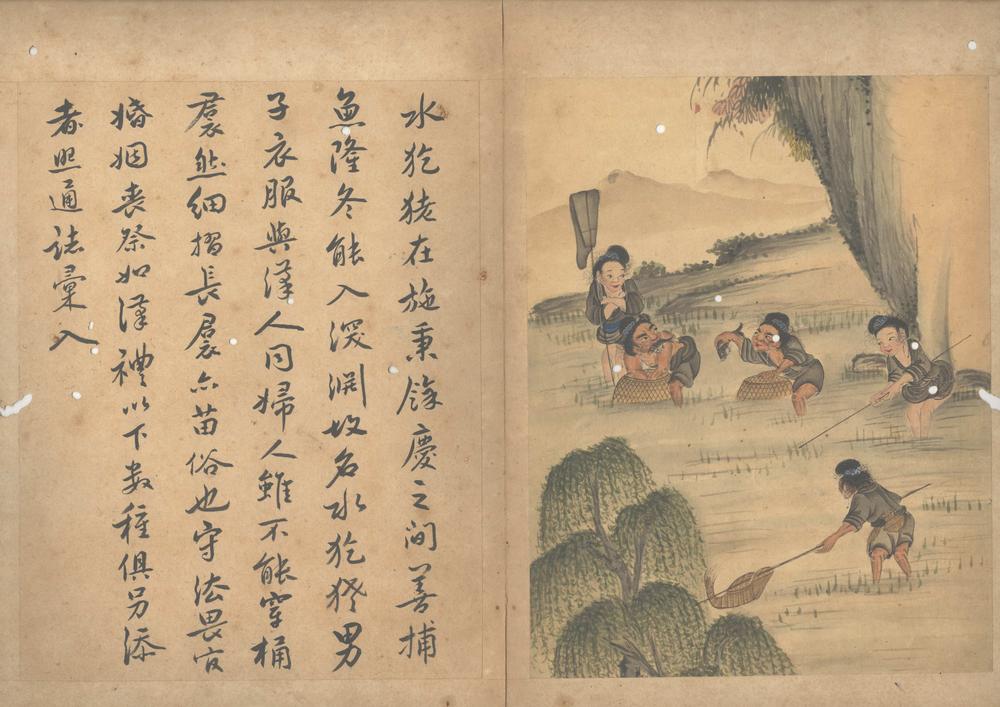 水犵狫在施秉餘慶之間善捕
魚隆冬能入深淵故名水犵狫男
子衣服與漢人同婦人雖不能穿桶
裠然細摺長裠亦苗俗也守法畏官
婚姻喪祭如漢禮以下数種俱另添
者照通誌彙入